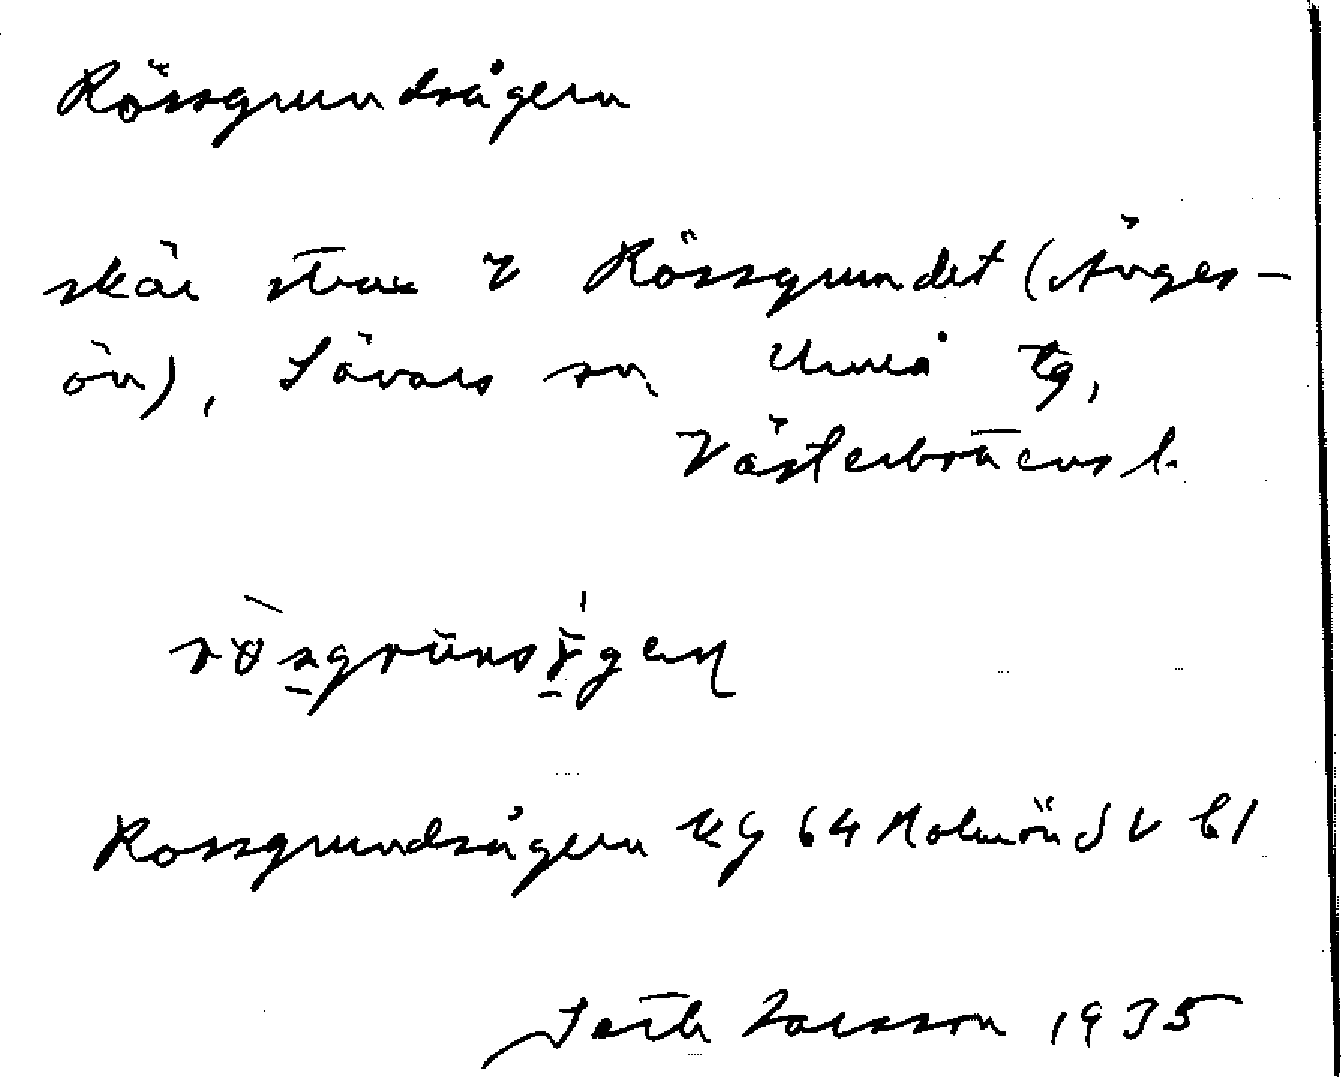 Rössgrundsågern
skär strax V Rössgrundet (Änges-
ön), Sävars sn Umeå tg,
Västerbottens l.
Rossgrundsågern Kg 64 Holmön SV bl
Seth Larsson 1935